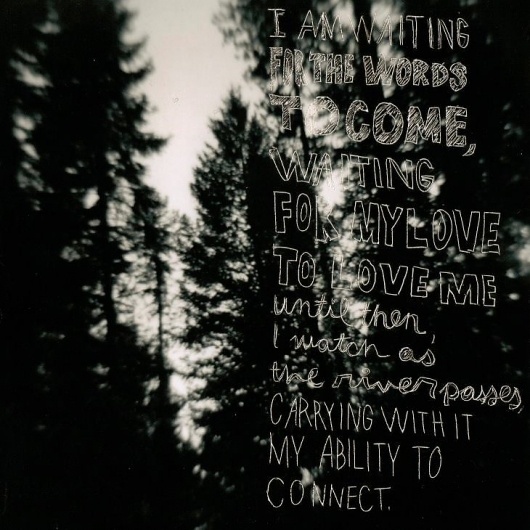 I AM WAITING
FOR THE WORDS
TO COME,
WAITING
FOR MY LOVE
TO LOVE ME
until then,
I watch as
the river passes
CARRYING WITH IT
MY ABILITY TO
CONNECT.